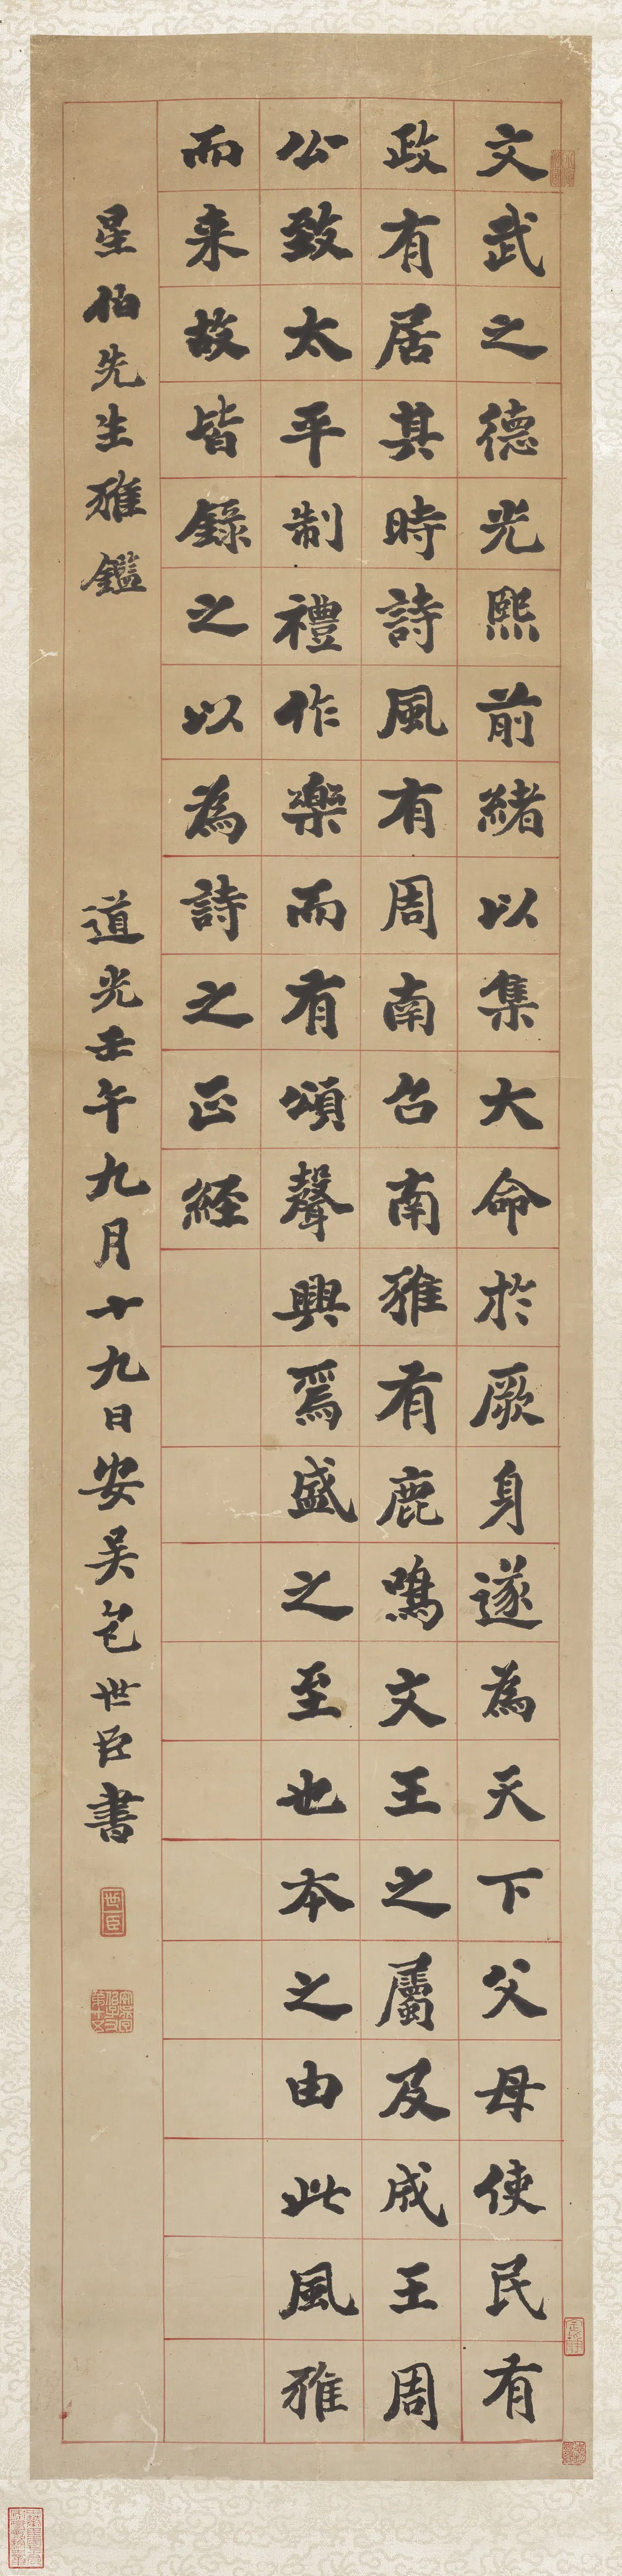 文武之德光熙前緒以集大命於厥身遂為天下父母使民有
政有居其時詩風有周南召南雅有鹿鳴文王之屬及成王周
公致太平制禮作樂而有頌聲興焉盛之至也本之由此風雅
而来故皆錄之以為詩之正經
星伯先生雅鑑
道光壬午九月十九日安吳包世臣書
世臣